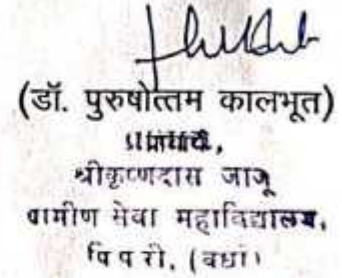 (डॉ. पुरुषोत्तम कालभूत)
प्राचार्य,
श्रीकृष्णदास जाजू
ग्रामीण सेवा महाविद्यालय,
पिपरी, (वर्धा)